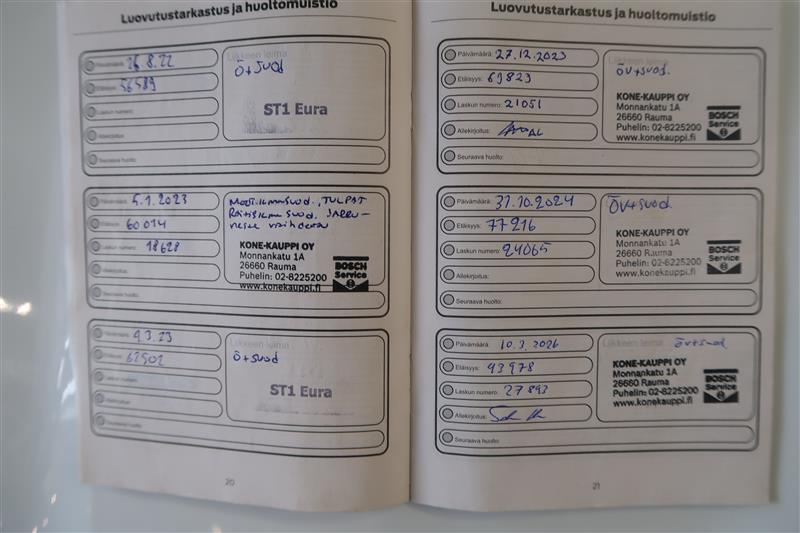 Luovutustarkastus ja huoltomuistio
Päivämäärä: 26.8.22
Etäisyys: 56589
Laskun numero:
Allekirjoitus:
Seuraava huolto:
Liikkeen leima
Ö+suod
ST1 Eura
Päivämäärä: 5.1.2023
Etäisyys: 60014
Laskun numero: 18628
Allekirjoitus:
Seuraava huolto:
TULPAT
KONE-KAUPPI OY
Monnankatu 1A
26660 Rauma
Puhelin: 02-8225200
www.konekauppi.fi
BOSCH
Service
Päivämäärä: 9.3.23
Etäisyys: 62502
Laskun numero:
Allekirjoitus:
Seuraava huolto:
Liikkeen leima
Ö+suod
ST1 Eura
20
Luovutustarkastus ja huoltomuistio
Päivämäärä: 27.12.2023
Etäisyys: 69823
Laskun numero: 21051
Allekirjoitus:
Seuraava huolto:
öv+suod.
KONE-KAUPPI OY
Monnankatu 1A
26660 Rauma
Puhelin: 02-8225200
www.konekauppi.fi
BOSCH
Service
Päivämäärä: 31.10.2024
Etäisyys: 77216
Laskun numero: 24065
Allekirjoitus:
Seuraava huolto:
Öv+suod.
KONE-KAUPPI OY
Monnankatu 1A
26660 Rauma
Puhelin: 02-8225200
www.konekauppi.fi
BOSCH
Service
Päivämäärä: 10.3.2026
Etäisyys: 93978
Laskun numero: 27893
Allekirjoitus:
Seuraava huolto:
Liikkeen leima öv+suod
KONE-KAUPPI OY
Monnankatu 1A
26660 Rauma
Puhelin: 02-8225200
www.konekauppi.fi
BOSCH
Service
21